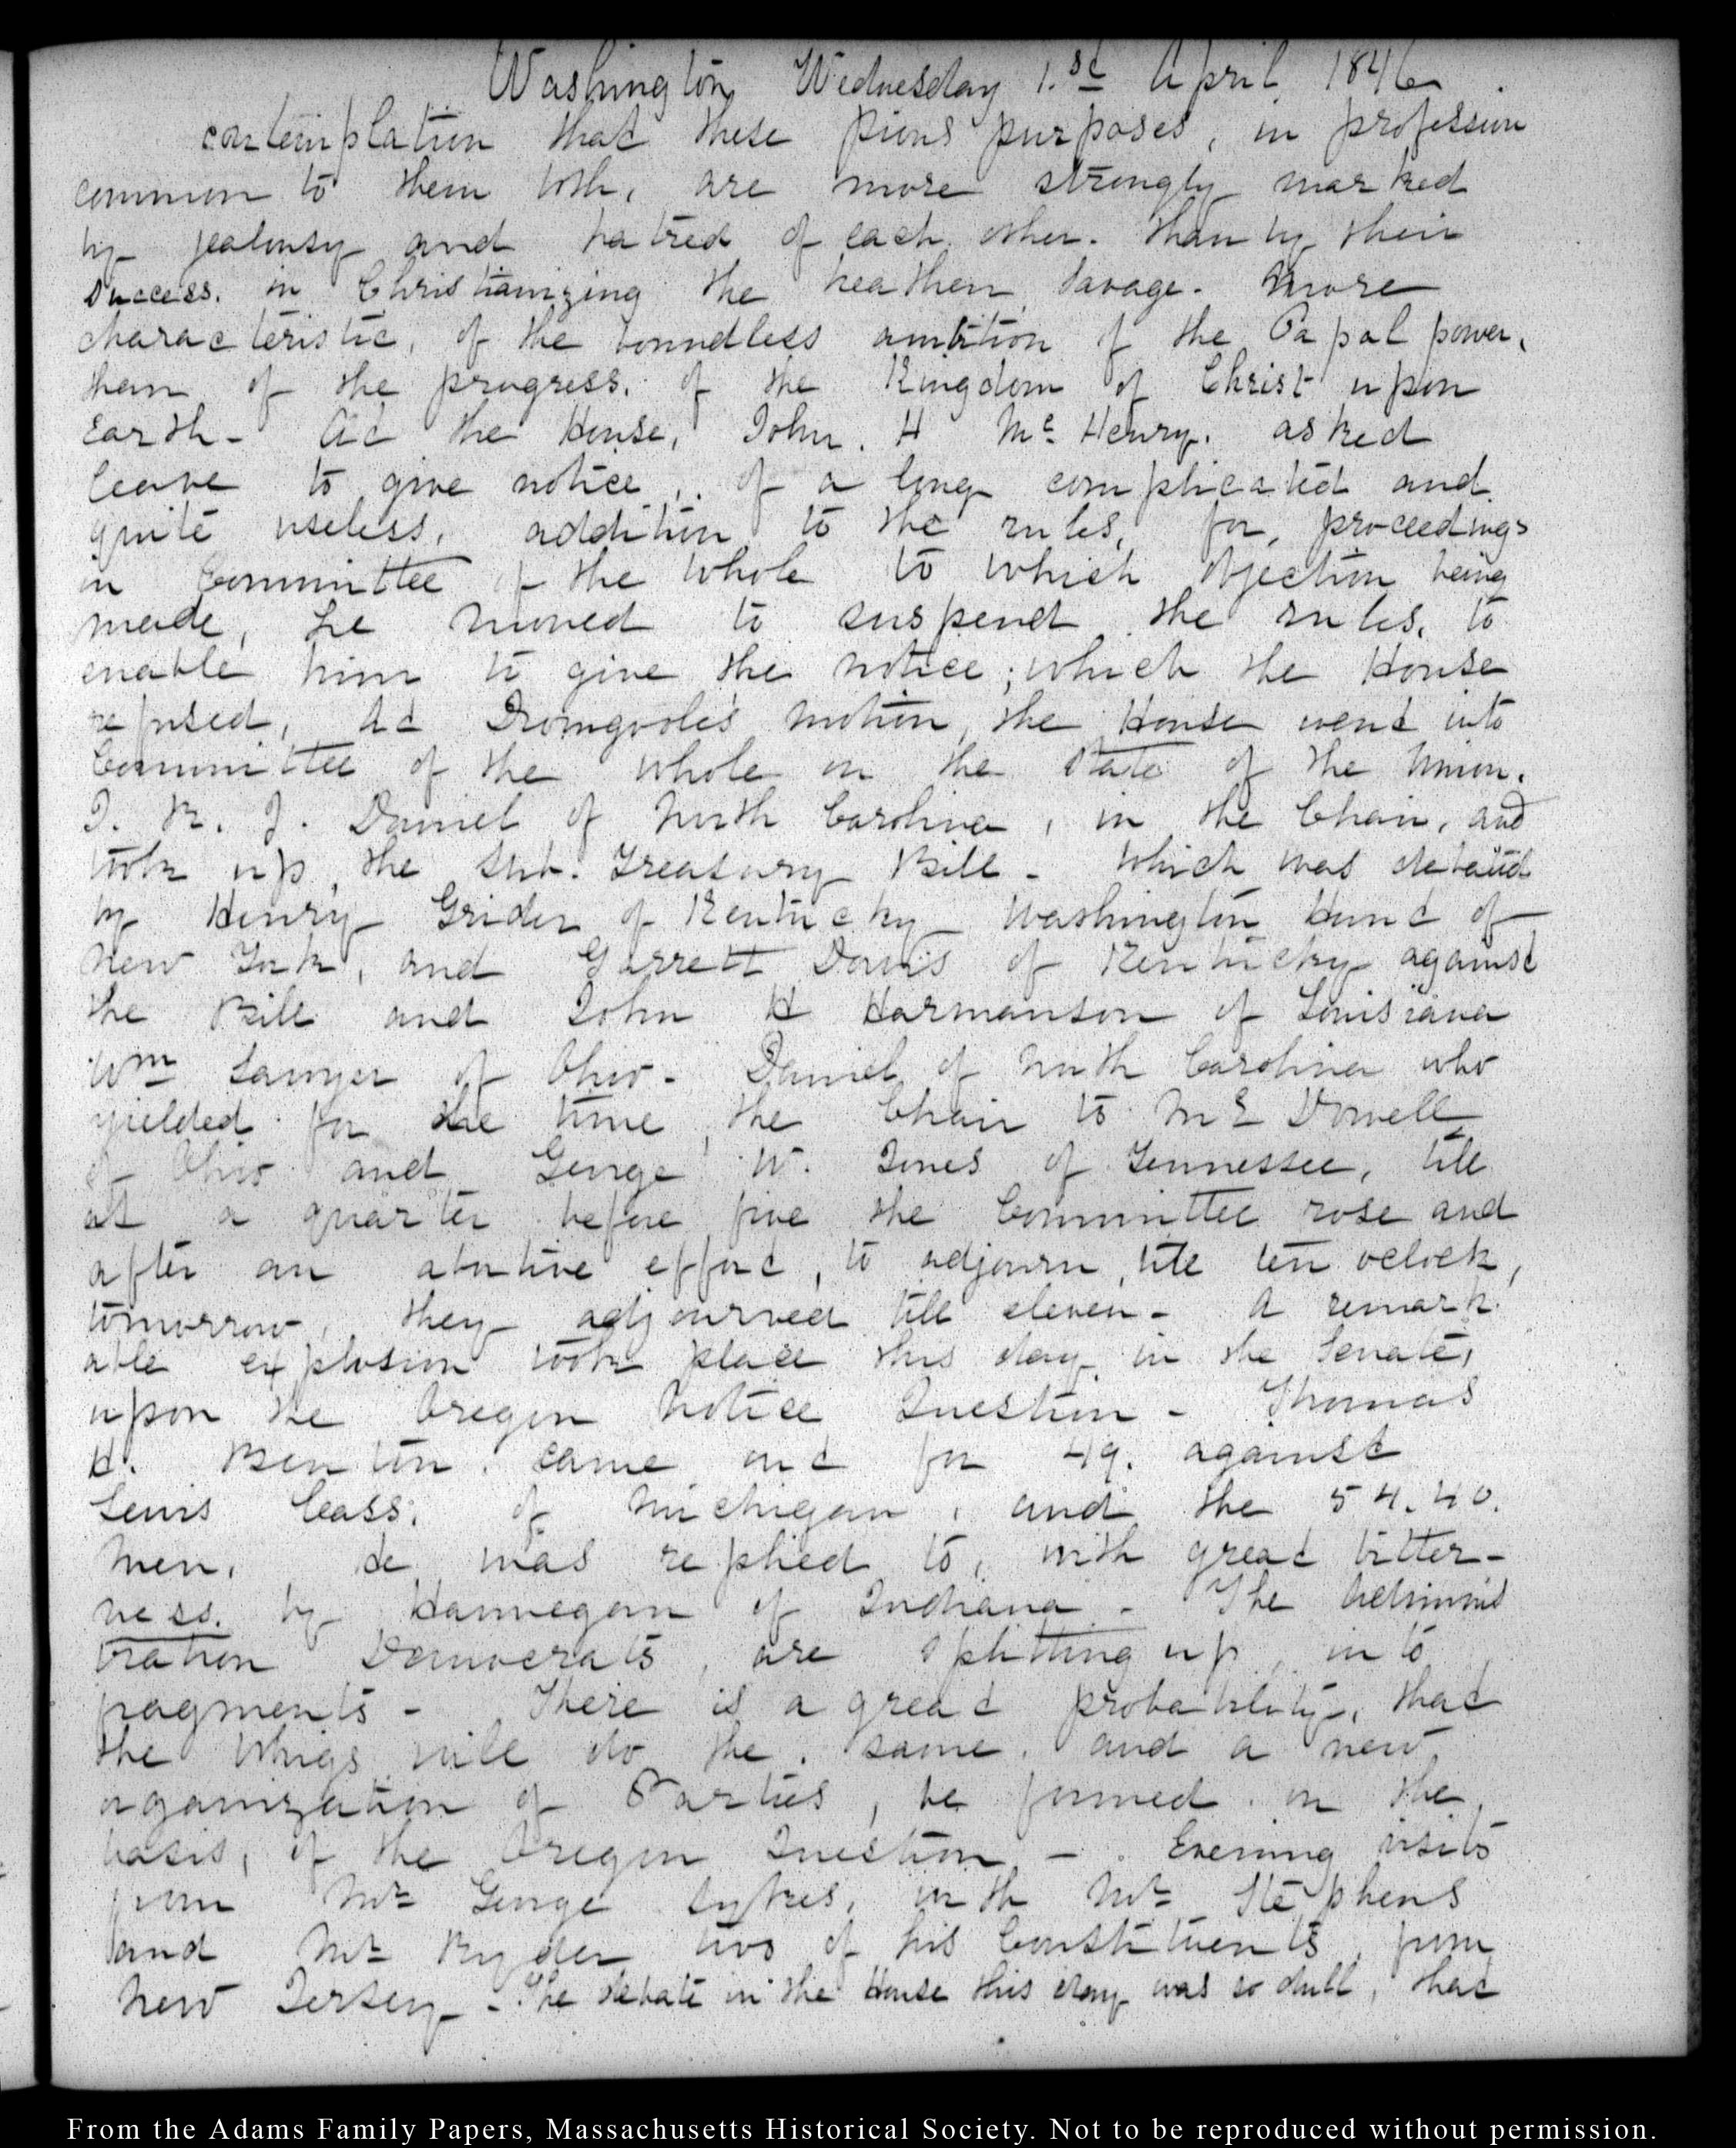 Washington Wednesday 1.st April 1846.
contemplation that these pious purposes, in profession
common to them both, are more strongly marked
by jealousy and hatred of each other. than by their
success. in Christianizing the heathen, savage. more
characteristic, of the boundless ambition of the Papal power,
than of the progress. of the Kingdom of Christ upon
Earth - At the House, John. H McHenry. asked
leave to give notice, of a long complicated and
quite useless, addition to the rules, for, proceedings
in Committee of the whole to which objection being
made, he moved to suspend the rules, to
enable him to give the notice; which the House
refused, At Dromgoole's motion, the House went into
Committee of the whole on the state of the Union.
J. R. J. Daniel of North Carolina, in the Chair, and
took up, the Sub. Treasury Bill - which was debated
by Henry Grider of Kentucky Washington Hunt of
New York, and Garrett Davis of Kentucky against
the Bill and John H Harmanson of Louisiana
Wm Sawyer of Ohio - Daniel of North Carolina who
yielded for the time, the Chair to McDowell
of Ohio and George W. Jones of Tennessee, till
at a quarter before five the Committee rose and
after an abortive effort, to adjourn, till ten oclock,
tomorrow, they adjourned till eleven - A remark
able explosion took place this day in the Senate,
upon the Oregon Notice Question - Thomas
H. Benton. came out for 49. against
Lewis Cass. of Michigan, and the 54.40.
men. He was replied to, with great bitter-
ness. by Hannegan of Indiana - The Adminis
tration Democrats, are splitting up, into
fragments - There is a great probability, that
the Whigs will do the. same. and a new
organization of Parties, be formed. on the,
basis, of the Oregon Question - Evening visits
from Mr George Sykes, with Mr Stephens
and Mr Ryder two of his Constituents, from
New Jersey - The debate in the House this day was so dull, that
From the Adams Family Papers, Massachusetts Historical Society. Not to be reproduced without permission.